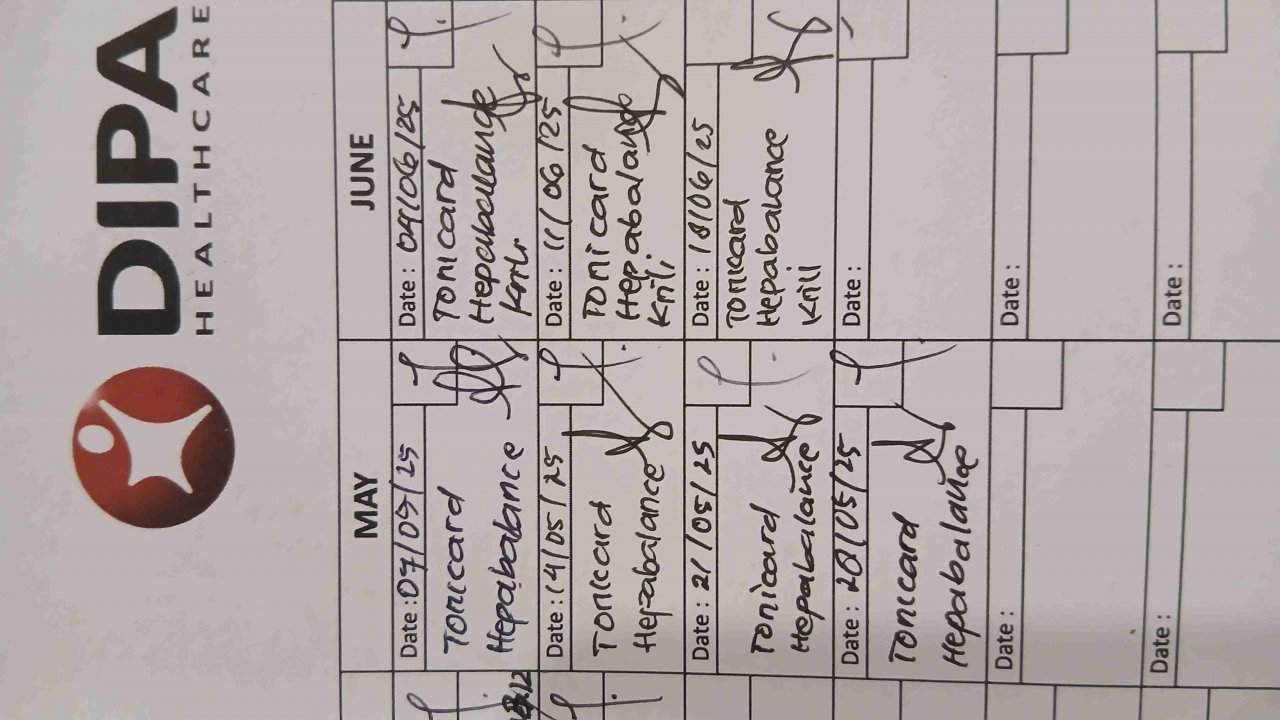 DIPA
HEALTHCARE
MAY
Date : 07/05/25
Tonicard
Hepabalance
Date : 14/05/25
Tonicard
Hepabalance
Date : 21/05/25
Tonicard
Hepabalance
Date : 28/05/25
Tonicard
Hepabalance
Date :
Date :
JUNE
Date : 04/06/25
Tonicard
Hepabalance
Krill
Date : 11/06/25
Tonicard
Hepabalance
Krill
Date : 18/06/25
Tonicard
Hepabalance
Krill
Date :
Date :
Date :